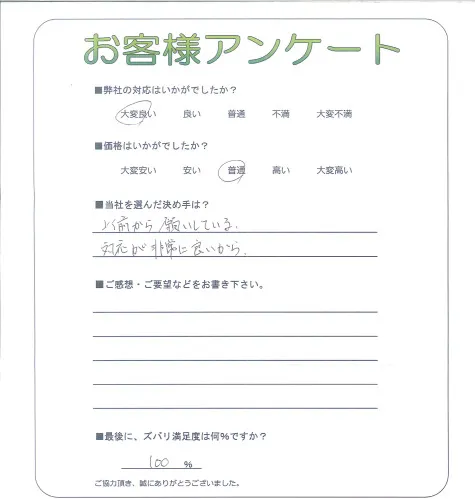 お客様アンケート
■弊社の対応はいかがでしたか？
大変良い 良い 普通 不満 大変不満
■価格はいかがでしたか？
大変安い 安い 普通 高い 大変高い
■当社を選んだ決め手は？
以前から願いしている.
対応が非常に良いから.
■ご感想・ご要望などをお書き下さい。
■最後に、ズバリ満足度は何%ですか？
100 %
ご協力頂き、誠にありがとうございました。